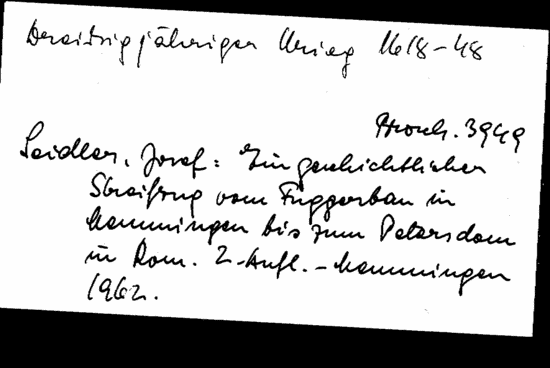 Dreißigjähriger Krieg 1618-48
Brosch. 3949
Seidler, Josef: Ein geschichtlicher
Streifzug vom Fuggerbau in
Memmingen bis zum Petersdom
in Rom. 2. Aufl. - Memmingen
1962.